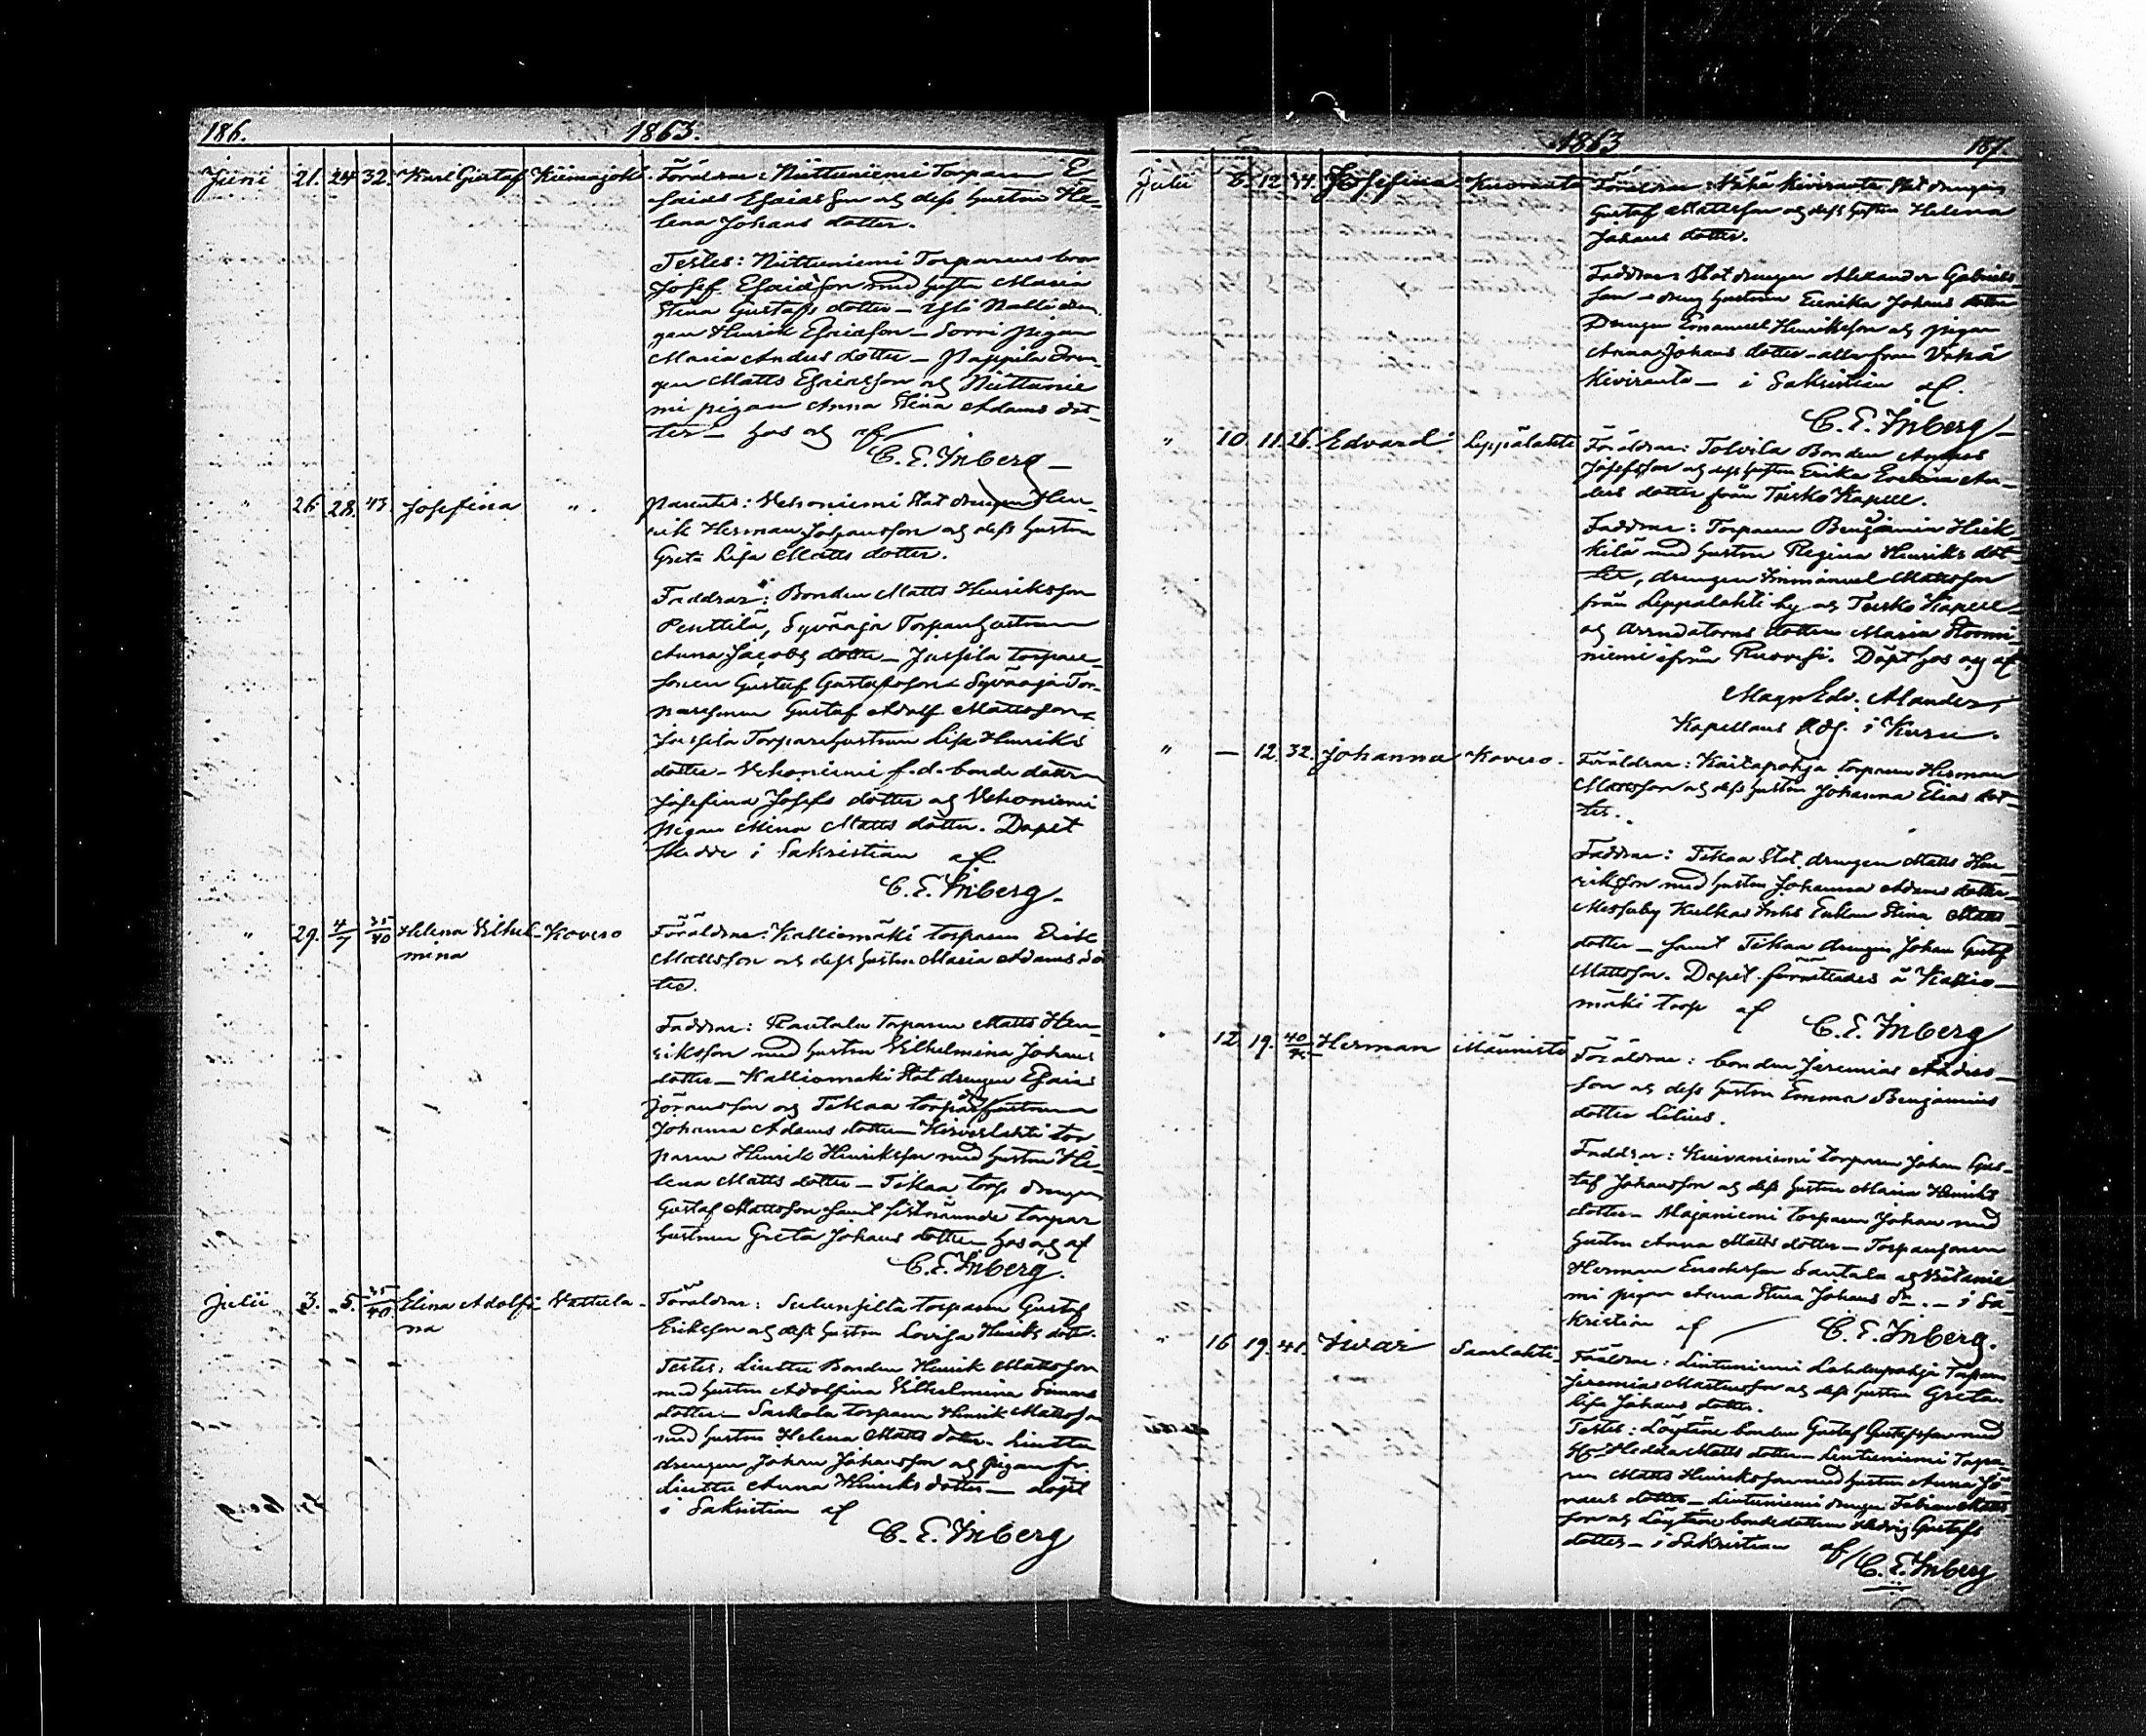 186. 1863.
Juni 21. 24 32. Karl Gustaf Kiimajok. Föräldrar: Niittuniemi Torparen E-
saias Esaiasson och dess hustru He-
lena Johans dotter.
Testes: Niittuniemi Torparens bror
Josef Esaiasson med hustru Maria
Stina Gustafs dotter – Nalli dren-
gen Henrik Esaiasson – Sorri pigan
Maria Anders dotter – Pappila dren-
gen Matts Esaiasson och Niittunie-
mi pigan Anna Stina Adams dot-
ter – hos och af
C. E. Inberg –
" 26 28. 43 Josefina ".
Parentes: Vehoniemi Stat drengen Hen-
rik Herman Johansson och dess hustru
Greta Lisa Matts dotter.
Faddrar: Bonden Matts Henriksson
Penttilä, Syväoja Torparhustrun
Anna Jacobs dotter – Jussila torpare-
sonen Gustaf Gustafsson – Syväoja Tor-
paresonen Gustaf Adolf Mattsson –
Jussila Torparehustrun Lisa Henriks
dotter – Vehoniemi f.d. bonde dottren
Josefina Josefs dotter och Vehoniemi
pigan Mina Matts dotter. Dopet
skedde i Sakristian af
C. E. Inberg –
" 29. 4/7 35/40 Helena Vilhel- Kovero
mina
Föräldrar: Kalliomäki torparen Erik
Mattsson och dess hustru Maria Adams dot
ter.
Faddrar: Rantala torparen Matts Hen-
riksson med hustru Vilhelmina Johans
dotter – Kalliomäki Stat drengen Esaias
Jöransson och Tikaa torparhustrun
Johanna Adams dotter – Kirveslahti tor
paren Henrik Henriksson med hustru He-
lena Matts dotter – Tikaa torp drengen
Gustaf Mattsson samt torpar
hustrun Greta Johans dotter – hos och af
C. E. Inberg.
Julii 3. 5. 35/40 Elina Adolfi- Vattula –
na
Föräldrar: torparen Gustaf
Eriksson och dess hustru Lovisa Henriks dotter.
Testes: Liuttu Bonden Henrik Mattsson
med hustru Adolfina Vilhelmina Simons
dotter – Saskola torparen Henrik Mattsson
med hustru Helena Matts dotter – Liuttu
drengen Johan Johansson och pigan fr.
Liuttu Anna Henriks dotter – döpt
i Sakristian af
C. E. Inberg
1863 187.
Julii 6. 12 44. Josefina Kuoranta Föräldrar: Vähä Kiviranta Stat drengen
Gustaf Mattsson och dess hustru Helena
Johans dotter.
Faddrar: Stat drengen Alexander Gabriels-
son – dreng hustrun Eerika Johans dotter
Drengen Emanuel Henriksson och pigan
Anna Johans dotter – alla från Vähä
Kiviranta – i Sakristian af.
C. E. Inberg –
" 10. 11. 26. Edvard Leppälahti Föräldrar: Tolvila Bonden August
Josefsson och dess hustru Erika Evelina An-
ders dotter från Teisko Kapell.
Faddrar: Torparen Benjamin Heik-
kilä med hustru Regina Henriks dot-
ter, drengen Immanuel Mattsson
från Leppalahti by och Teisko Kapell –
och arrendatorns dottren Maria
niemi ifrån Ruovesi. Döpt hos och af
Magn. Edv. Alander,
Kapellans adj. i Kuru.
" – 12. 32. Johanna Kovero. Föräldrar: Kaitapohja torparen Herman
Mattsson och dess hustru Johanna Elias dot-
ter.
Faddrar: Tikaa Stat drengen Matts Hen-
riksson med hustru Johanna Adams dotter –
Messuby Enkan Stina Matts
dotter – samt Tikaa drengen Johan Gustaf
Mattsson. Dopet förrättades å Kallio-
mäki torp af C. E. Inberg
" 12. 19. 40/ Herman Männistö Föräldrar: bonden Jeremias Anders-
son och dess hustru Emma Benjamins
dotter Lilius.
Faddrar: Kuivaniemi torparen Johan Gus-
taf Johansson och dess hustru Maria Henriks
dotter – Majaniemi torparen Johan med
hustru Anna Matts dotter – Torparsonen
Herman Santala och Niitunie-
mi pigan Anna Stina Johans dr. – i Sa-
kristian af C. E. Inberg.
" 16 19. 41. Ivar Saarlahti. Föräldrar: Lintuniemi Lahdenpohja Torparn
Jeremias Martinsson och dess hustru Greta
Lisa Johans dotter.
Testes: Löytäne bonden Gustaf Gustafsson med
Hr Hedda Matts dotter – Lintuniemi Torpa-
ren Matts Henriksson med hustru Anna Jo-
hans dotter – Lintuniemi drengen Fabian Matts
son och Löytäne bondedottren Hedvig Gustafs
dotter – i Sakristian af C. E. Inberg